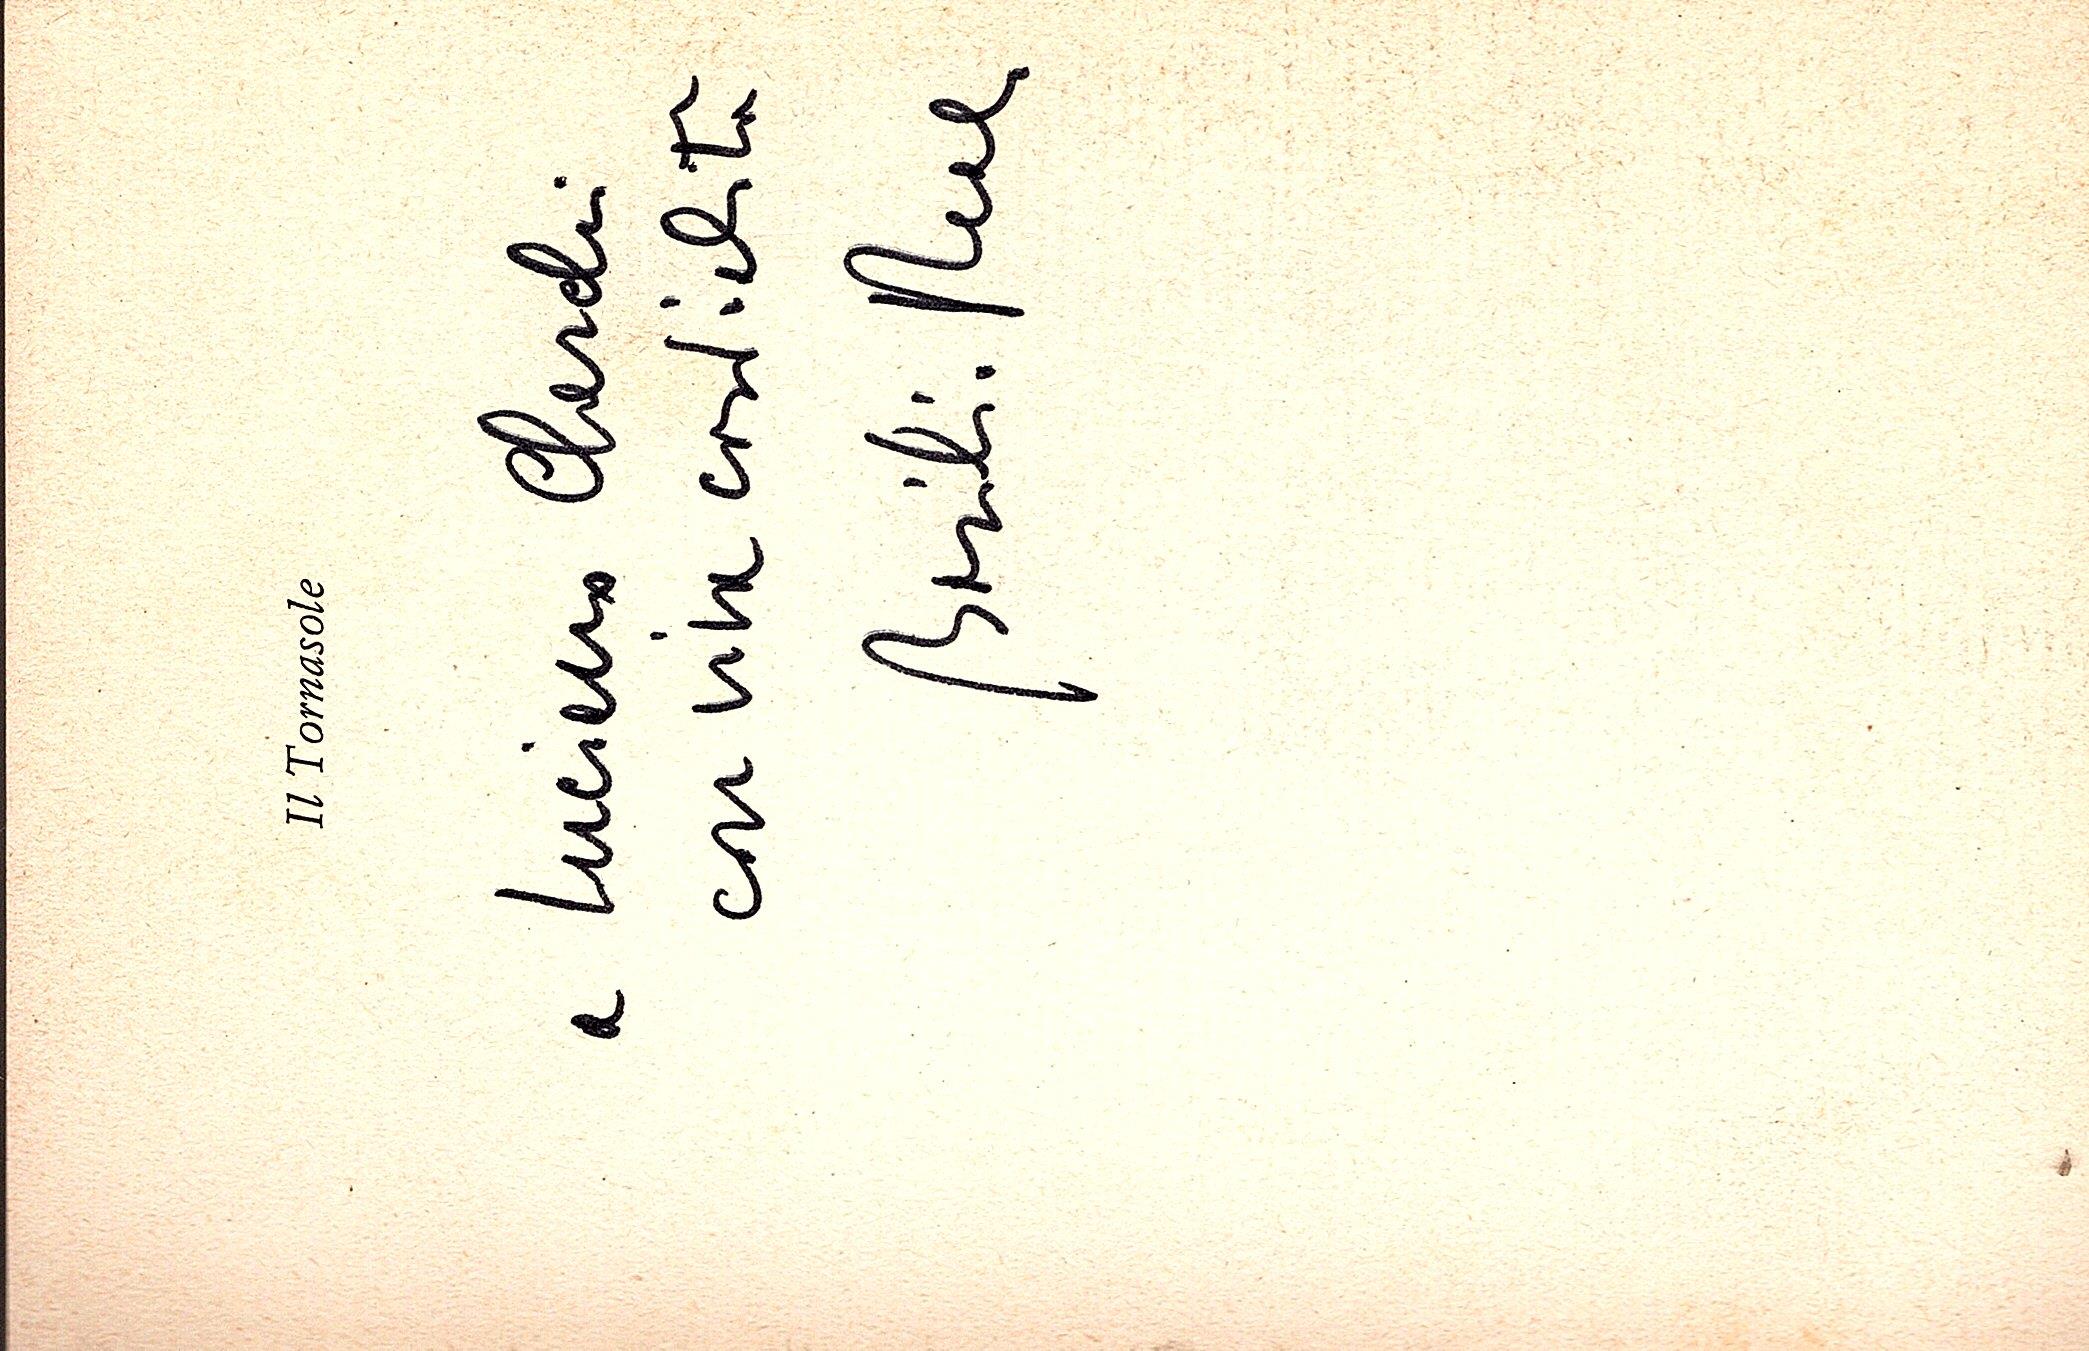 Il Tornasole
a Luciano Cherchi
con viva cordialità
Basilio Reale